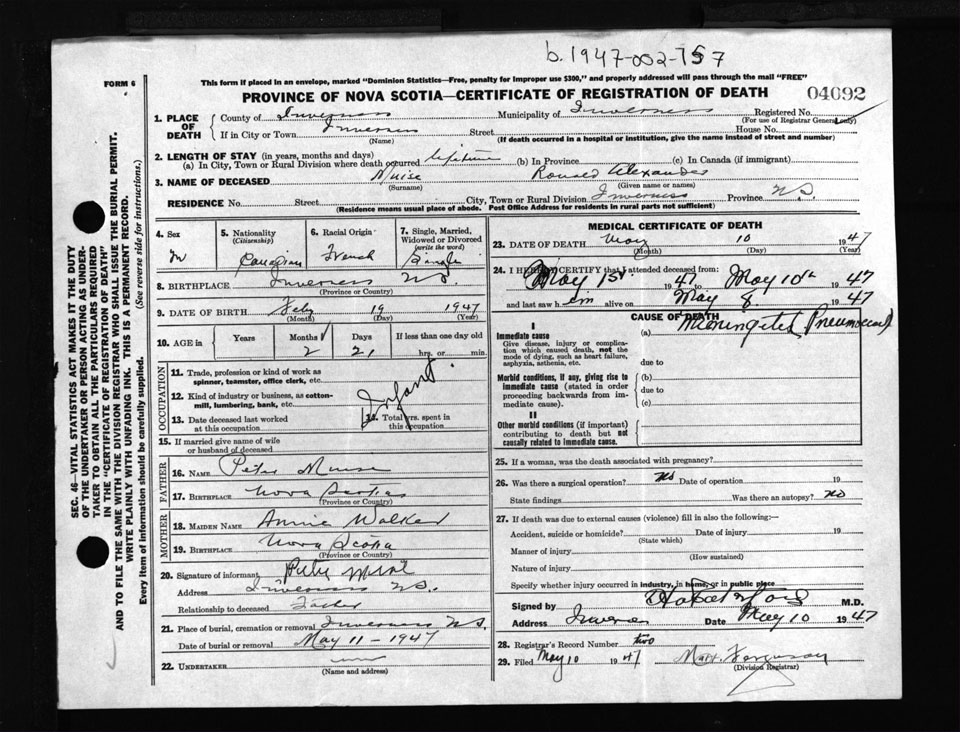 b. 1947-002-157
FORM 6
This form if placed in an envelope, marked "Dominion Statistics—Free, penalty for improper use $300," and properly addressed will pass through the mail "FREE"
PROVINCE OF NOVA SCOTIA—CERTIFICATE OF REGISTRATION OF DEATH 04092
1. PLACE OF DEATH County of Inverness Municipality of Inverness Registered No.
(For use of Registrar General only)
If in City or Town Inverness Street House No.
(Name) (If death occurred in a hospital or institution, give the name instead of street and number)
2. LENGTH OF STAY (in years, months and days)
(a) In City, Town or Rural Division where death occurred lifetime (b) In Province (c) In Canada (if immigrant)
3. NAME OF DECEASED Muise Ronald Alexander
(Surname) (Given name or names)
RESIDENCE No. Street City, Town or Rural Division Inverness Province N.S.
(Residence means usual place of abode. Post Office Address for residents in rural parts not sufficient)
SEC. 46—VITAL STATISTICS ACT MAKES IT THE DUTY
OF THE UNDERTAKER OR PERSON ACTING AS UNDER-
TAKER TO OBTAIN ALL THE PARTICULARS REQUIRED
IN THE "CERTIFICATE OF REGISTRATION OF DEATH"
AND TO FILE THE SAME WITH THE DIVISION REGISTRAR WHO SHALL ISSUE THE BURIAL PERMIT.
WRITE PLAINLY WITH UNFADING INK. THIS IS A PERMANENT RECORD.
Every item of information should be carefully supplied. (See reverse side for instructions.)
4. Sex M
5. Nationality (Citizenship) Canadian
6. Racial Origin French
7. Single, Married, Widowed or Divorced (write the word) Single
8. BIRTHPLACE Inverness N.S.
(Province or Country)
9. DATE OF BIRTH Feb 19 1947
(Month) (Day) (Year)
10. AGE in Years Months 2 Days 21 If less than one day old hrs. or min.
OCCUPATION
11. Trade, profession or kind of work as
spinner, teamster, office clerk, etc.
12. Kind of industry or business, as cotton-
mill, lumbering, bank, etc.
Infant
13. Date deceased last worked
at this occupation
14. Total yrs. spent in
this occupation
15. If married give name of wife
or husband of deceased
FATHER
16. NAME Peter Muise
17. BIRTHPLACE Nova Scotia
(Province or Country)
MOTHER
18. MAIDEN NAME Annie Walker
19. BIRTHPLACE Nova Scotia
(Province or Country)
20. Signature of informant
Address Inverness N.S.
Relationship to deceased Father
21. Place of burial, cremation or removal Inverness N.S.
Date of burial or removal May 11 – 1947
22. UNDERTAKER
(Name and address)
MEDICAL CERTIFICATE OF DEATH
23. DATE OF DEATH May 10 1947
(Month) (Day)
24. I HEREBY CERTIFY that I attended deceased from:
May 1st. 1947 to May 10th 1947
and last saw him alive on May 8 1947
CAUSE OF DEATH
I
Give disease, injury or complica-
tion which caused death, not the
mode of dying, such as heart failure,
asphyxia, asthenia, etc.
(a) Meningitis Pneumococcal
due to
Morbid conditions, if any, giving rise to
immediate cause (stated in order
proceeding backwards from im-
mediate cause).
(b)
due to
(c)
II
Other morbid conditions (if important)
contributing to death but not
causally related to immediate cause.
25. If a woman, was the death associated with pregnancy?
26. Was there a surgical operation? No Date of operation 19
State findings Was there an autopsy? No
27. If death was due to external causes (violence) fill in also the following:—
Accident, suicide or homicide? Date of injury 19
(State which)
Manner of injury
(How sustained)
Nature of injury
Specify whether injury occurred in industry, in home, or in public place
Signed by M.D.
Address Inverness Date May 10 1947
28. Registrar's Record Number two
29. Filed May 10 1947 Ferguson
(Division Registrar)